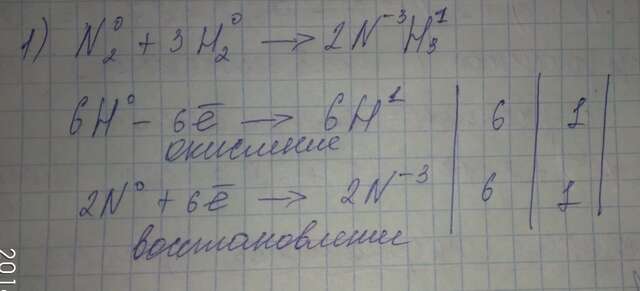 1) N₂⁰ + 3H₂⁰ → 2N⁻³H₃¹
6H⁰ - 6ē → 6H¹ | 6 | 1 |
окисление
2N⁰ + 6ē → 2N⁻³ | 6 | 1 |
восстановление